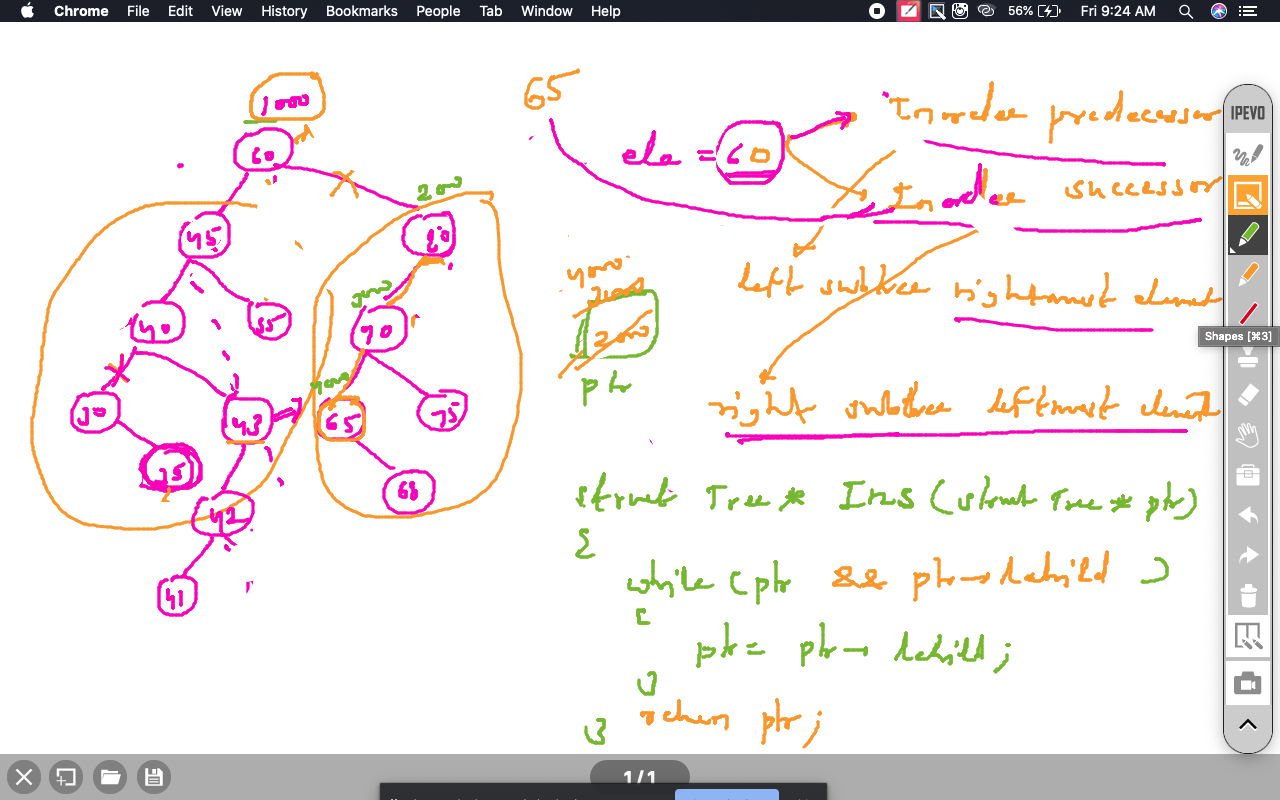 Chrome File Edit View History Bookmarks People Tab Window Help 56% Fri 9:24 AM
1000
60
45
200
80
40
55
3000
70
4000
30
43
65
75
35
42
68
41
65
ele = 60
Inorder predecessor
Inorder successor
left subtree rightmost element
right subtree leftmost element
4000
2000
ptr
struct Tree * Ins (struct Tree * ptr)
{
while (ptr && ptr→lchild )
{
ptr = ptr→ lchild;
}
return ptr;
}
IPEVO
Shapes [⌘3]
1/1